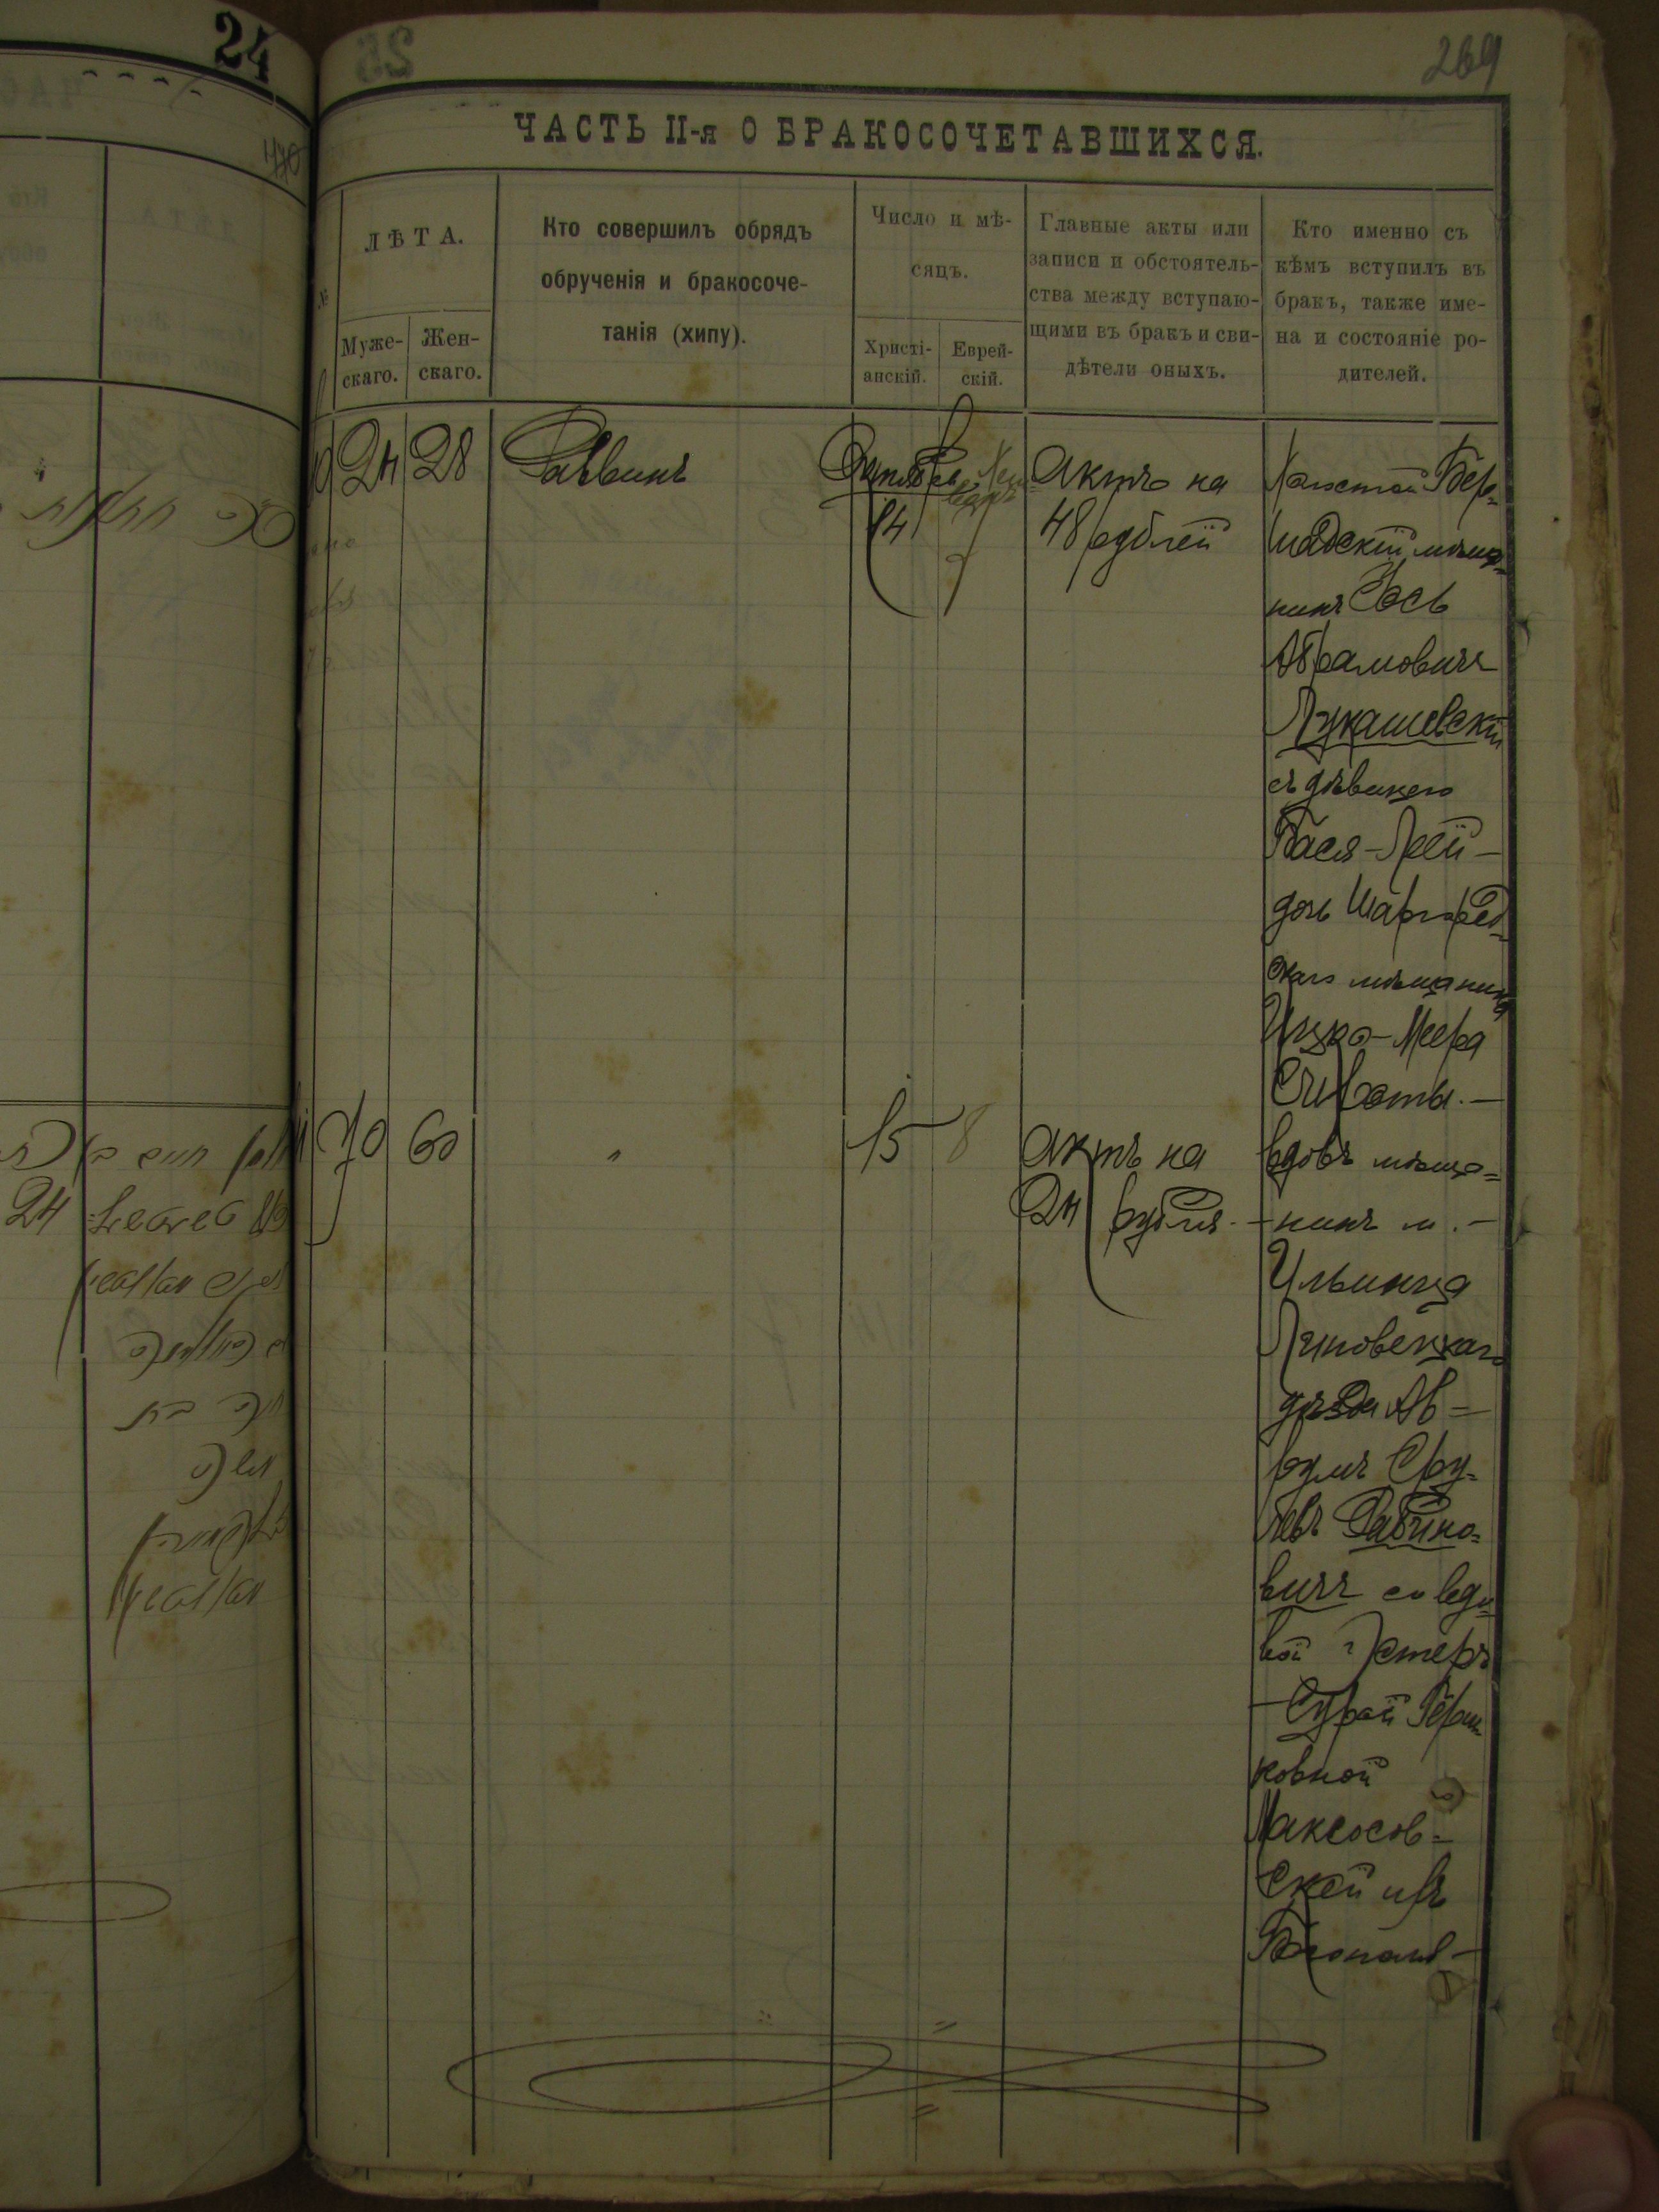 24
269
ЧАСТЬ II-я О БРАКОСОЧЕТАВШИХСЯ.
ЛѢТА.
Муже-
скаго.
Жен-
скаго.
Кто совершилъ обрядъ
обрученія и бракосоче-
танія (хипу).
Число и мѣ-
сяцъ.
Христі-
анскій.
Еврей-
скій.
Главные акты или
записи и обстоятель-
ства между вступаю-
щими въ бракъ и сви-
дѣтели оныхъ.
Кто именно съ
кѣмъ вступилъ въ
бракъ, также име-
на и состояніе ро-
дителей.
24
28
Раввинъ
Октябрь
14
7
Актъ на
48 рублей
Холостой Бер-
шадскій мѣща-
нинъ Іось
Абрамовичъ
Лукашевскій
съ дѣвицею
Бася-Леей-
дочь Шаргород-
скаго мѣщанина
Ицко-Меера
Сироты.-
70
60
"
15
8
Актъ на
24 рубля.-
Вдовъ мѣща-
нинъ м.-
Ильинца
Липовецкаго
уѣзда Ав-
румъ Сру-
левъ Рабино-
вичъ со вдо-
вой Эстеръ
-Сурой Герш-
ковной
Максосов-
ской изъ
24